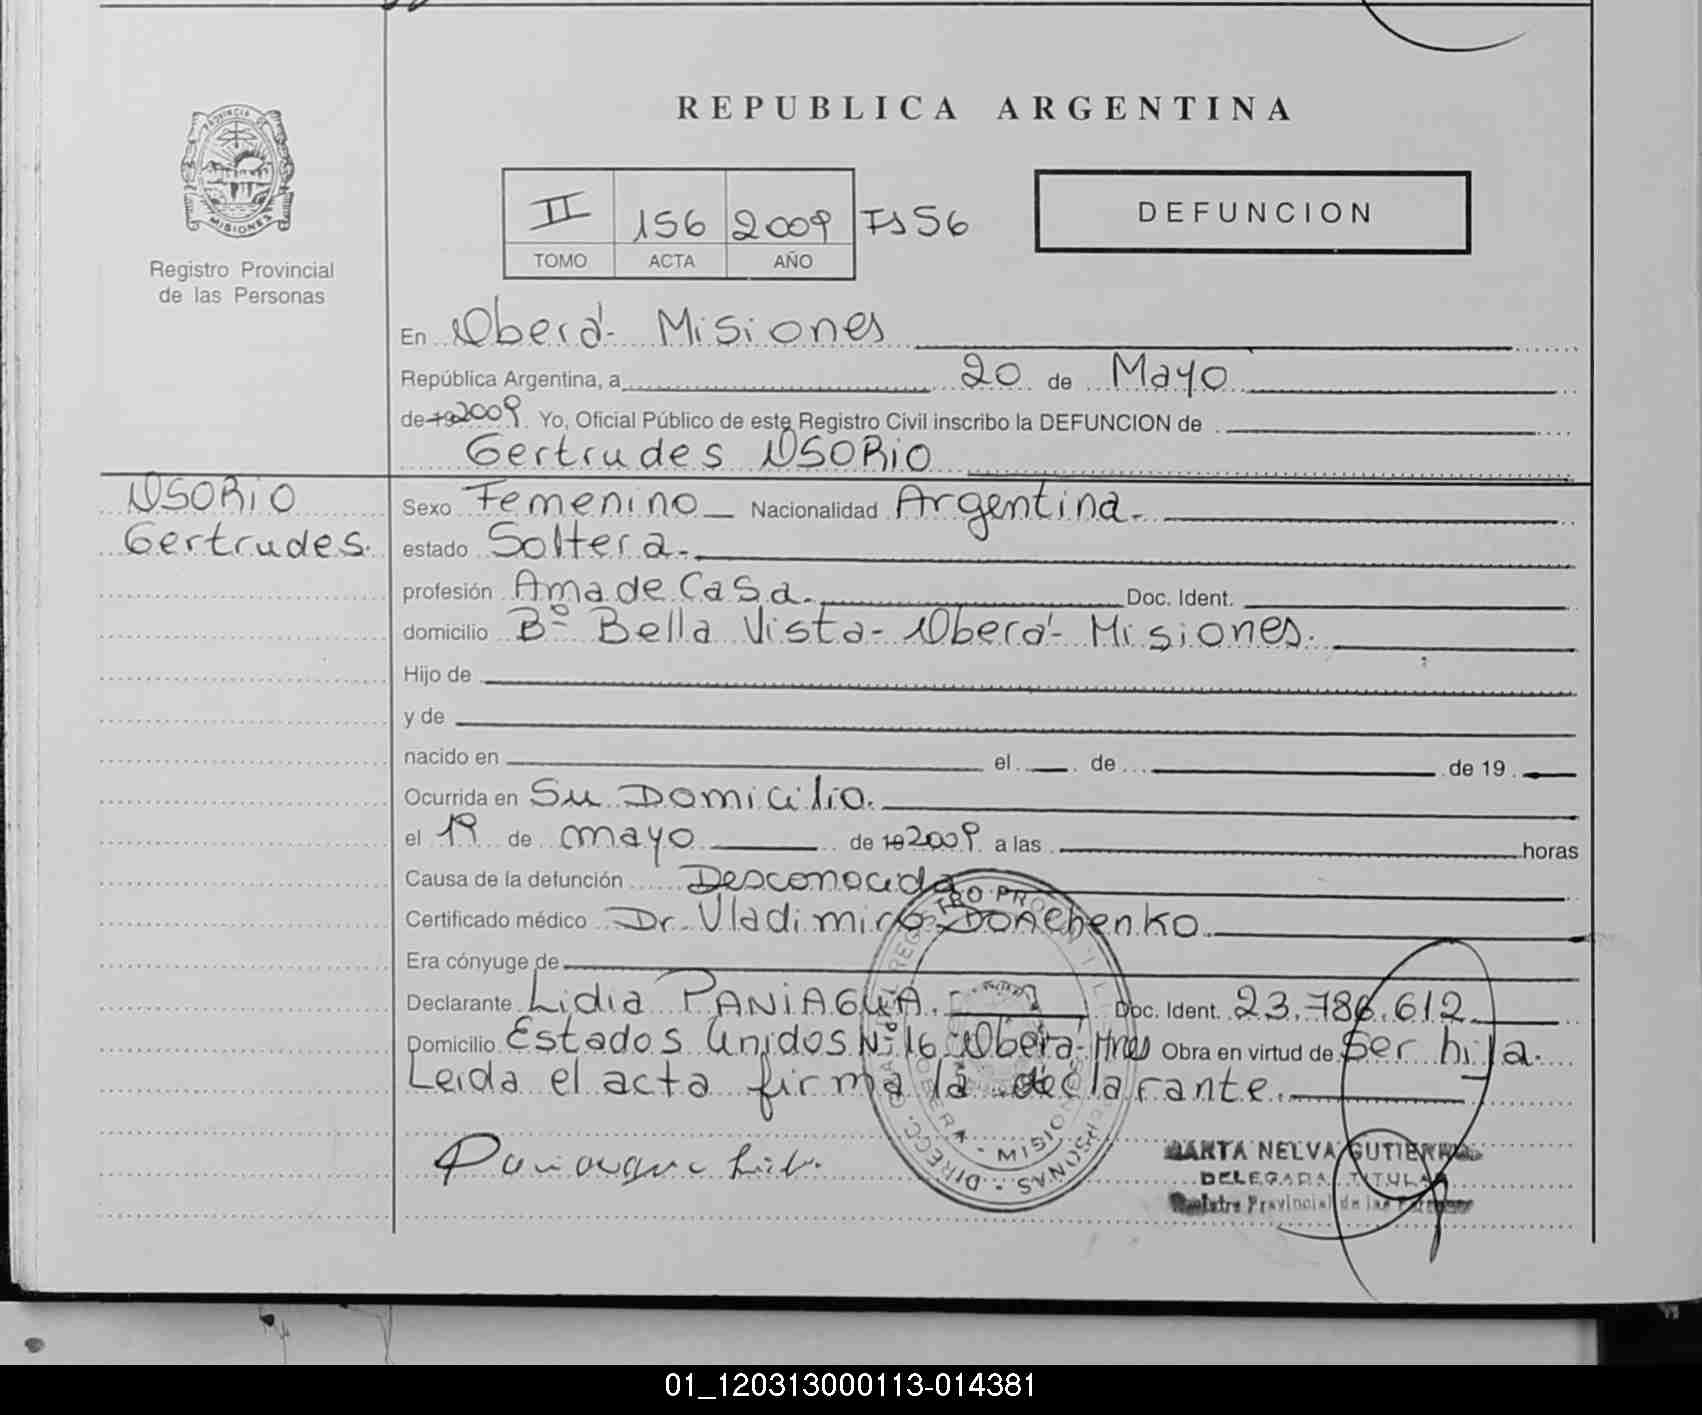 REPUBLICA ARGENTINA
PROVINCIA DE
MISIONES
Registro Provincial
de las Personas
II 156 2009 Fs 56
TOMO ACTA AÑO
DEFUNCION
En Oberá- Misiones
República Argentina, a 20 de Mayo
de 19 2009 Yo, Oficial Público de este Registro Civil inscribo la DEFUNCION de
Gertrudes OSORIO
OSORIO
Gertrudes.
Sexo Femenino Nacionalidad Argentina.
estado Soltera.
profesión Ama de Casa. Doc. Ident.
domicilio Bº Bella Vista- Oberá- Misiones.
Hijo de
y de
nacido en el de de 19
Ocurrida en Su Domicilio.
el 19 de mayo de 19 2009 a las horas
Causa de la defunción Desconocida
Certificado médico Dr. Vladimiro Donchenko.
Era cónyuge de
Declarante Lidia PANIAGUA. Doc. Ident. 23.786.612
Domicilio Estados Unidos Nº 16 Oberá- Mnes Obra en virtud de Ser hija.
Leida el acta firma la declarante.
MISIONES
MARTA NELVA GUTIERREZ
DELEGADA TITULAR
Registro Provincial de las Personas
01_120313000113-014381